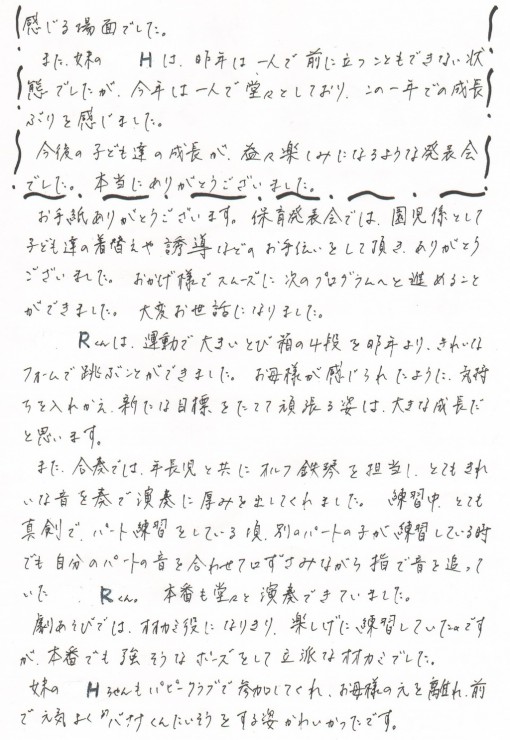 感じる場面でした。
また、妹の Hは、昨年は一人で前に立つこともできない状
態でしたが、今年は一人で堂々としており、この一年での成長
ぶりを感じました。
今後の子ども達の成長が、益々楽しみになるような発表会
でした。本当にありがとうございました。
お手紙ありがとうございます。保育発表会では、園児係として
子ども達の着替えや誘導などのお手伝いをして頂き、ありがとう
ございました。おかげ様でスムーズに次のプログラムへと進めること
ができました。大変お世話になりました。
Rくんは、運動で大きいとび箱の4段を昨年より、きれいな
フォームで跳ぶことができました。お母様が感じられたように、気持
ちを入れかえ、新たな目標をたてて頑張る姿は、大きな成長だ
と思います。
また、合奏では、年長児と共にオルフ鉄琴を担当し、とてもきれ
いな音を奏で演奏に厚みを出してくれました。練習中、とても
真剣で、パート練習をしている頃、別のパートの子が練習している時
でも自分のパートの音を合わせて口ずさみながら指で音を追って
いた Rくん。本番も堂々と演奏できていました。
劇あそびでは、オオカミ役になりきり、楽しげに練習していたのです
が、本番でも強そうなポーズをして立派なオオカミでした。
妹の Hちゃんもパピークラブで参加してくれ、お母様の元を離れ、前
で元気よく"バナナくんたいそうをする姿かわいかったです。